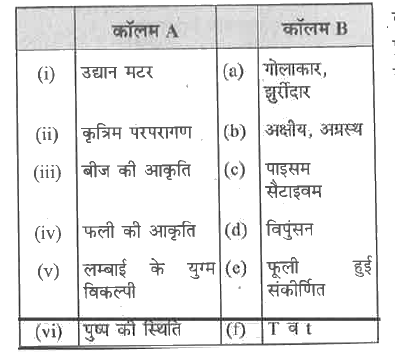 कॉलम A कॉलम B
(i) उद्यान मटर (a) गोलाकार,
झुर्रीदार
(ii) कृत्रिम परपरागण (b) अक्षीय, अग्रस्थ
(iii) बीज की आकृति (c) पाइसम
सैटाइवम
(iv) फली की आकृति (d) विपुंसन
(v) लम्बाई के युग्म (e) फूली हुई
विकल्पी संकीर्णित
(vi) पुष्प की स्थिति (f) T व t